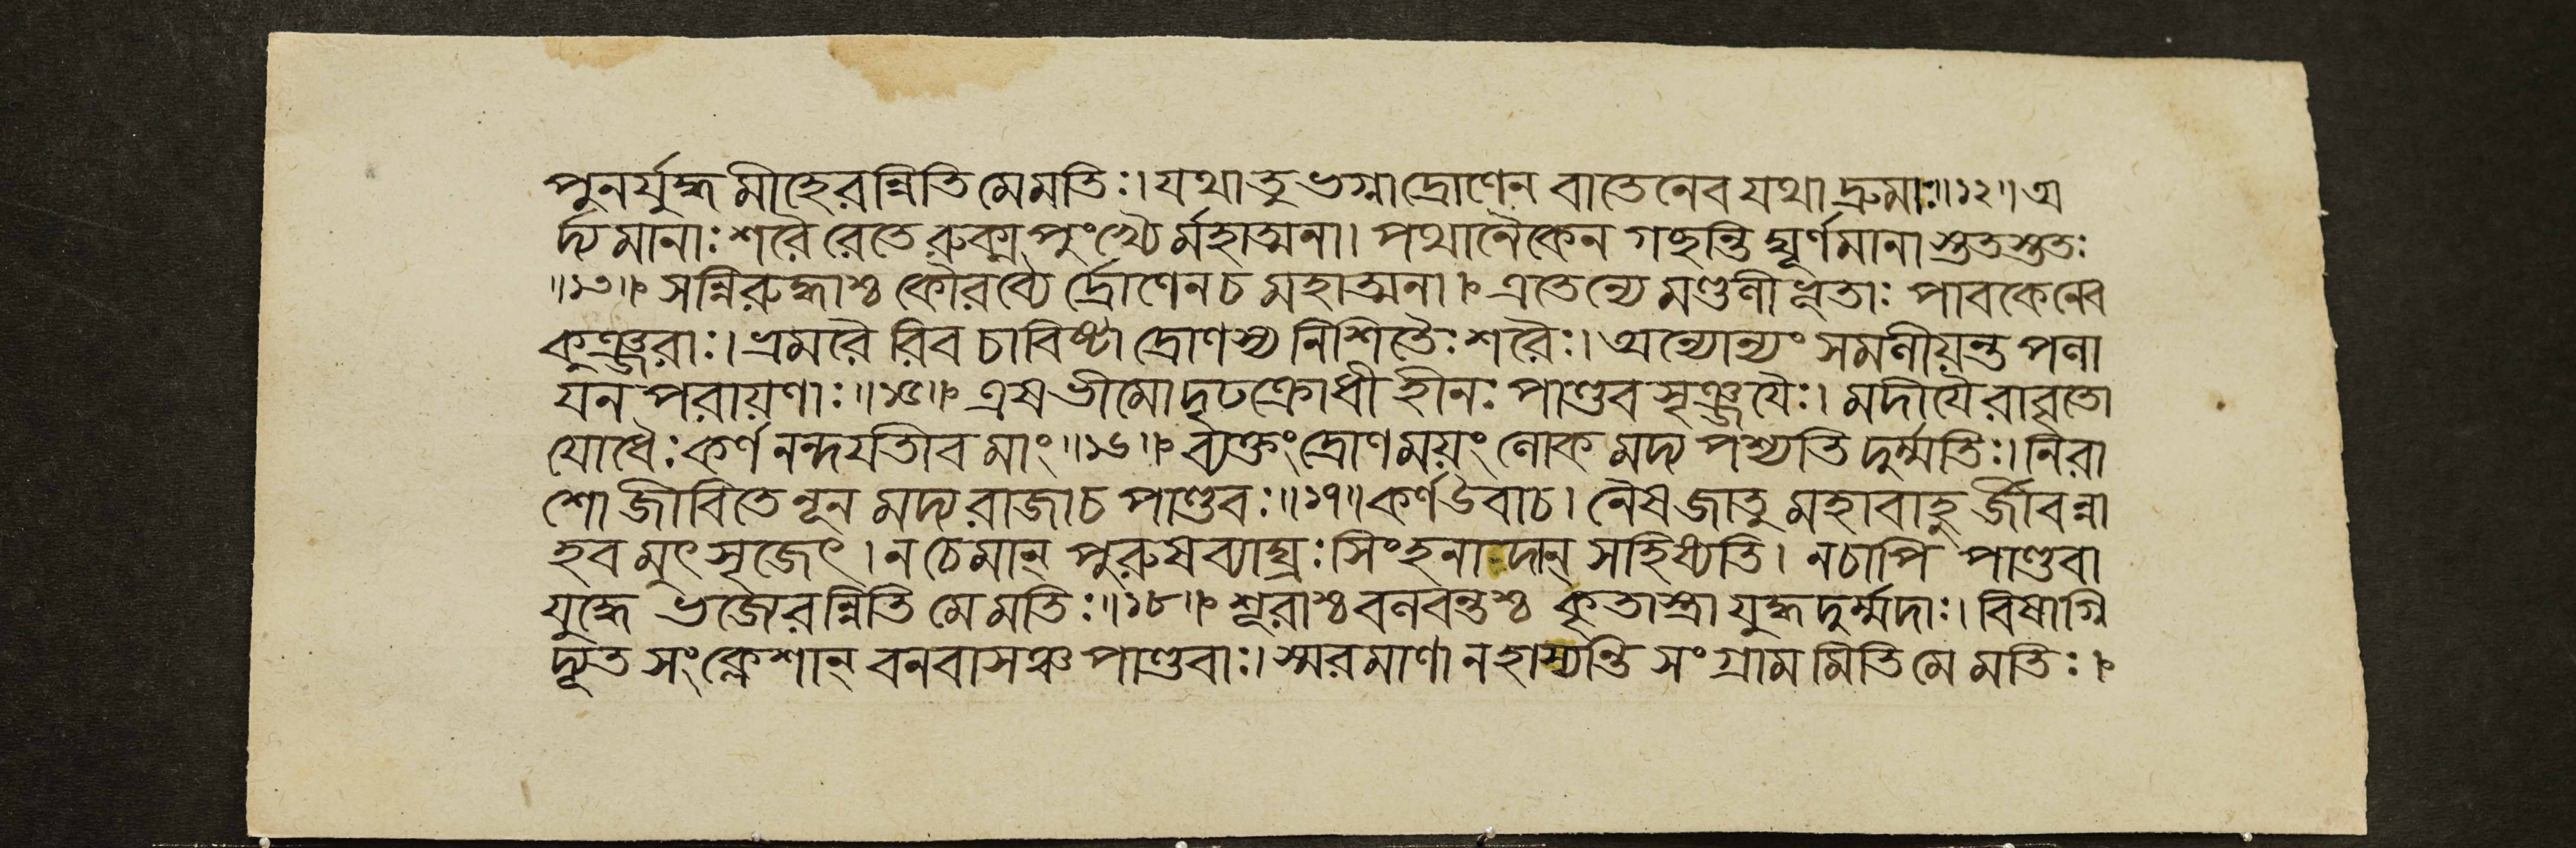 পুনর্যুদ্ধমীহেরন্নিতি মে মতিঃ। যথা তু ভগ্না দ্রোণেন বাতেনেব যথা দ্রুমাঃ॥১২॥ অ
র্দ্যমানাঃ শরৈরেতে রুক্মপুংখৈর্মহাত্মনা। পথা নৈকেন গছন্তি ঘূর্ণমানাস্ততস্ততঃ
॥১৩॥ সন্নিরুদ্ধাশ্চ কৌরব্যৈর্দ্রোণেন চ মহাত্মনা। এতেন্যে মণ্ডলীভূতাঃ পাবকেনেব
কুঞ্জরাঃ। ভ্রমরৈরিব চাবিষ্টা দ্রোণস্য নিশিতৈঃ শরৈঃ। অন্যোন্যং সমলীয়ন্ত পলা
যন পরায়ণাঃ॥১৫॥ এষ ভীমো দৃঢক্রোধী হীনঃ পাণ্ডব সৃঞ্জযৈঃ। মদীযৈরাবৃতো
যোধৈঃ কর্ণ নন্দযতীব মাং॥১৬॥ ব্যক্তং দ্রোণময়ং লোকমদ্য পশ্যতি দুর্ম্মতিঃ। নিরা
শো জীবিতে নূনমদ্য রাজা চ পাণ্ডবঃ॥১৭॥ কর্ণ উবাচ। নৈষ জাতু মহাবাহুর্জীবন্না
হবমুৎসৃজেৎ। ন চেমান্ পুরুষব্যাঘ্রঃ সিংহনাদান্ সহিষ্যতি। ন চাপি পাণ্ডবা
যুদ্ধে ভজ্যেরন্নিতি মে মতিঃ॥১৮॥ শূরাশ্চ বলবন্তশ্চ কৃতাস্ত্রা যুদ্ধদুর্ম্মদাঃ। বিষাগ্নি
দ্যূত সংক্লেশান্ বনবাসঞ্চ পাণ্ডবাঃ। স্মরমাণা ন হাস্যন্তি সংগ্রামমিতি মে মতিঃ।